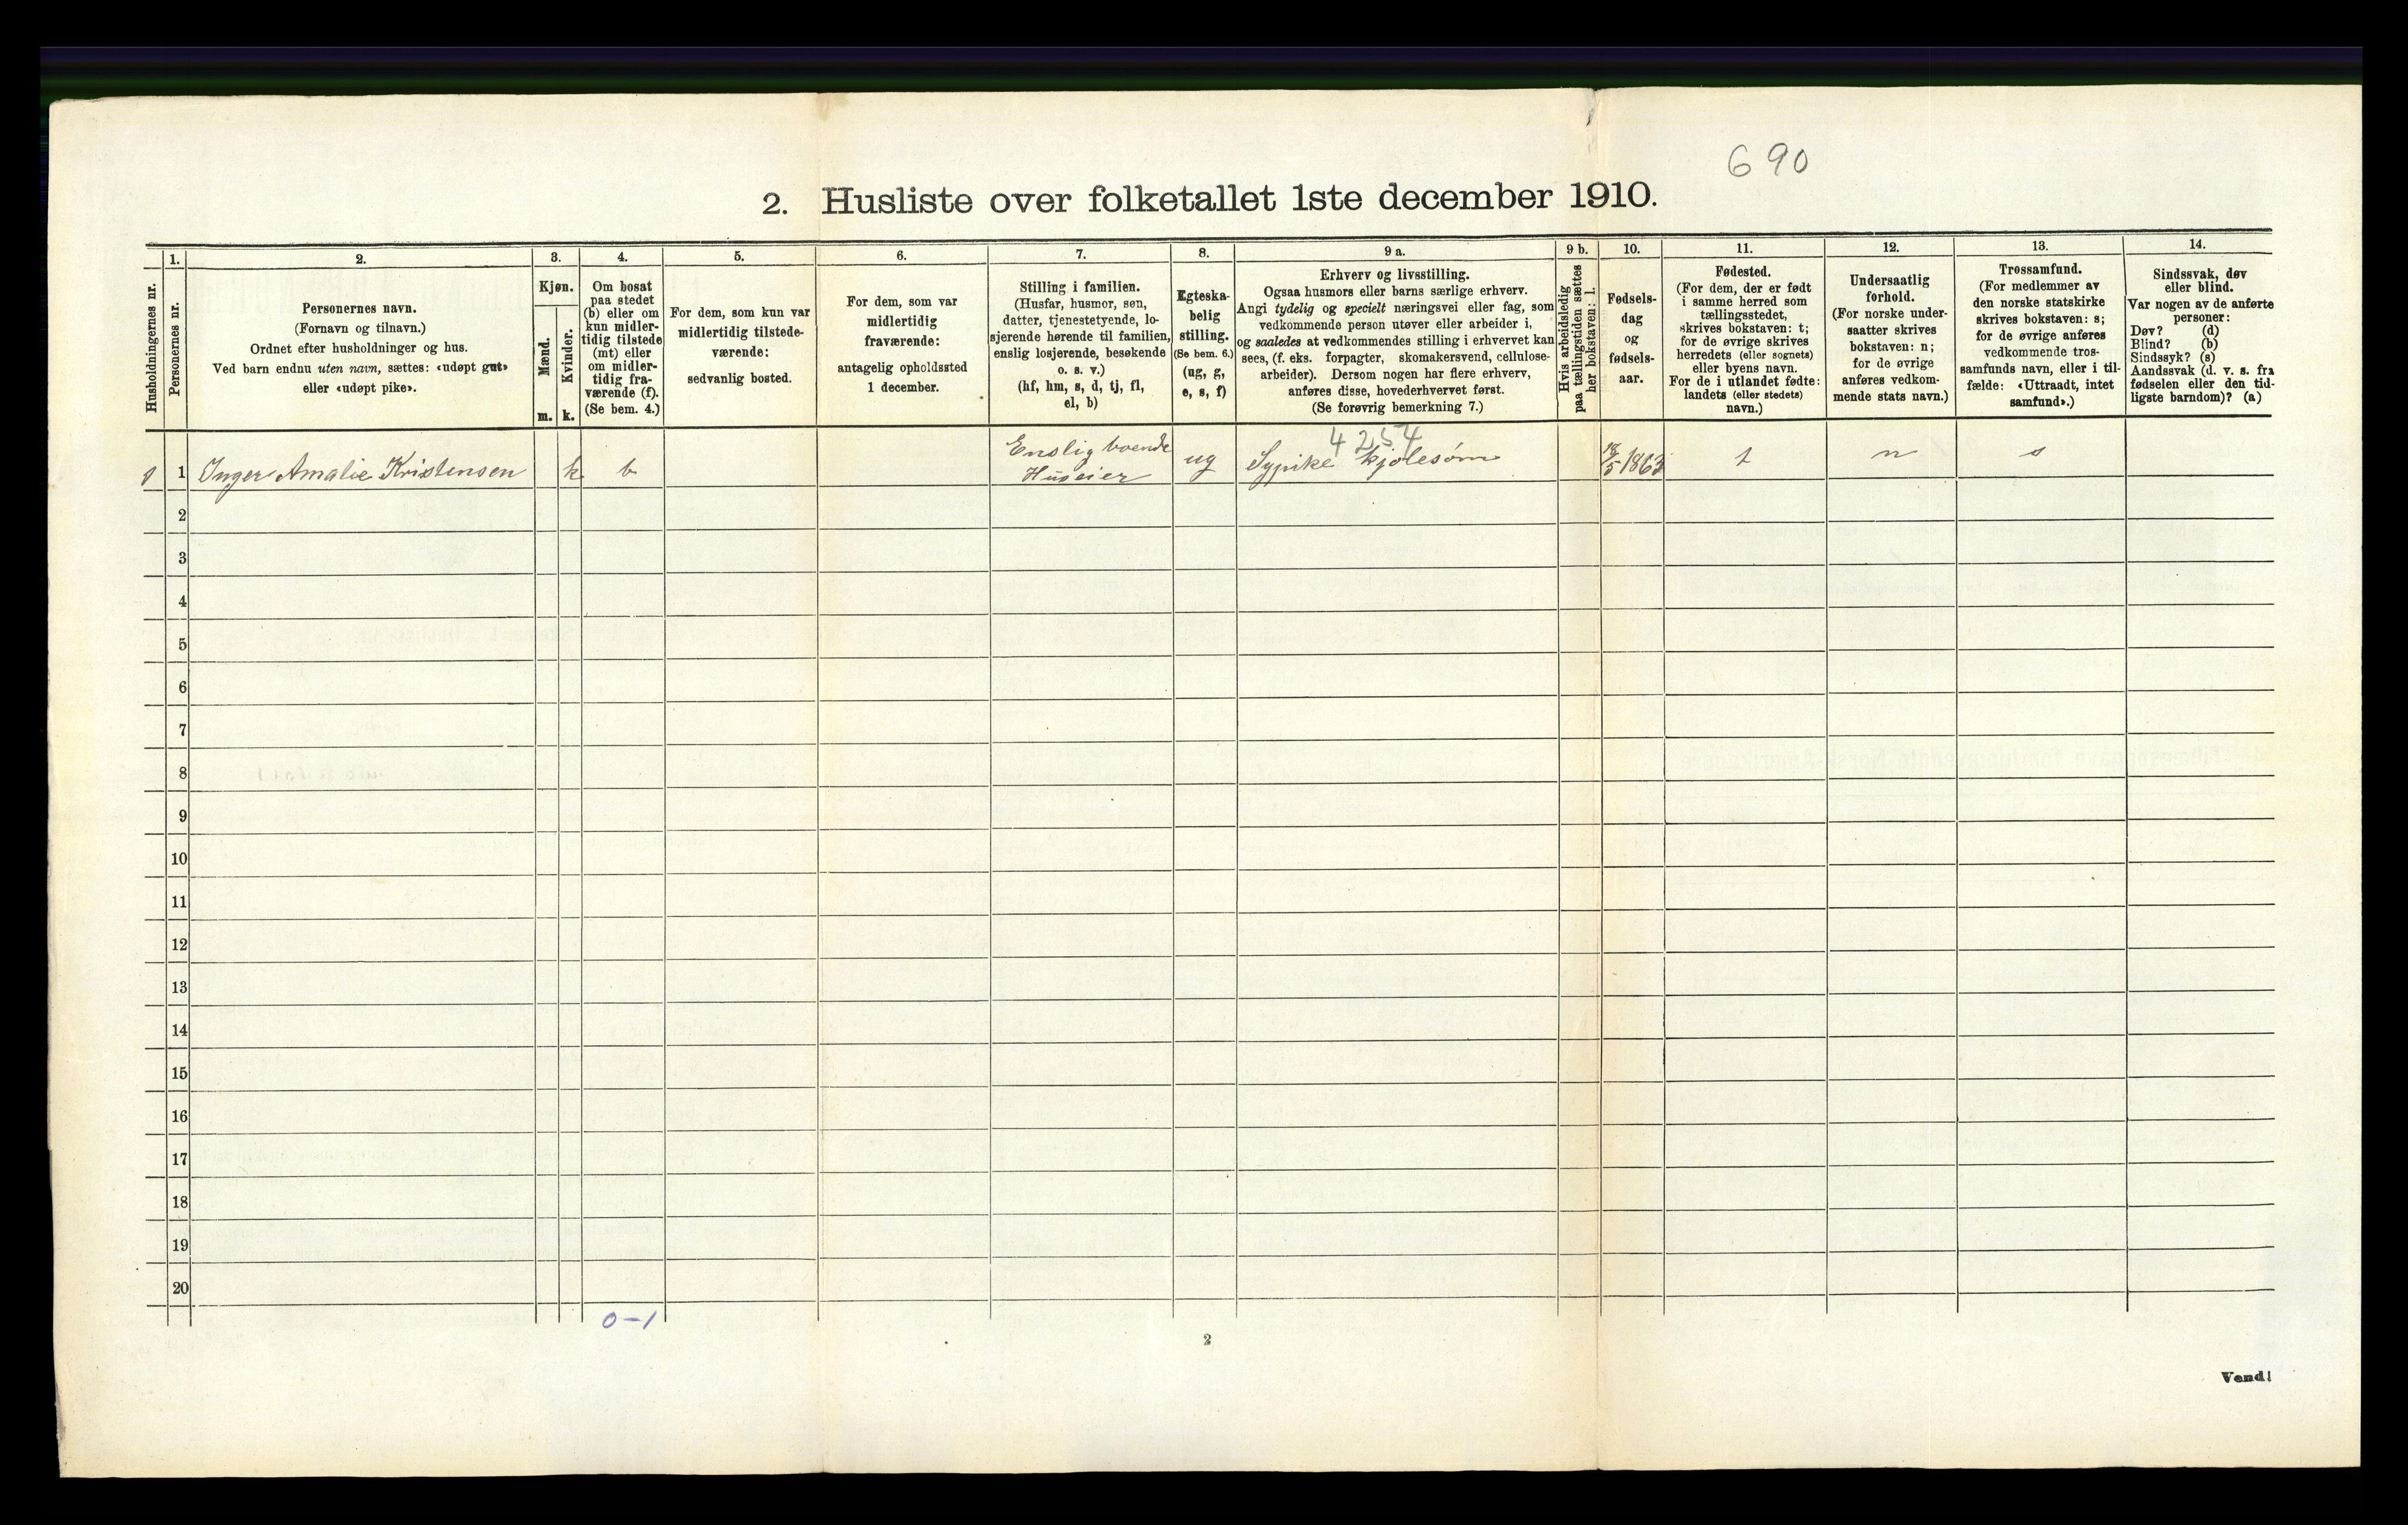 690
2. Husliste over folketallet 1ste december 1910.
Husholdningernes nr.
1.
Personernes nr.
2.
Personernes navn.
(Fornavn og tilnavn.)
Ordnet efter husholdninger og hus.
Ved barn endnu uten navn, sættes: «udøpt gut»
eller «udøpt pike».
3.
Kjøn.
Mænd.
m.
Kvinder.
k.
4.
Om bosat
paa stedet
(b) eller om
kun midler-
tidig tilstede
(mt) eller
om midler-
tidig fra-
værende (f).
(Se bem. 4.)
5.
For dem, som kun var
midlertidig tilstede-
værende:
sedvanlig bosted.
6.
For dem, som var
midlertidig
fraværende:
antagelig opholdssted
1 december.
7.
Stilling i familien.
(Husfar, husmor, søn,
datter, tjenestetyende, lo-
sjerende hørende til familien,
enslig losjerende, besøkende
o. s. v.)
(hf, hm, s, d, tj, fl,
el, b)
8.
Egteska-
belig
stilling.
(Se bem. 6.)
(ug, g,
e, s, f)
9 a.
Erhverv og livsstilling.
Ogsaa husmors eller barns særlige erhverv.
Angi tydelig og specielt næringsvei eller fag, som
vedkommende person utøver eller arbeider i,
og saaledes at vedkommendes stilling i erhvervet kan
sees, (f. eks. forpagter, skomakersvend, cellulose-
arbeider). Dersom nogen har flere erhverv,
anføres disse, hovederhvervet først.
(Se forøvrig bemerkning 7.)
9 b.
Hvis arbeidsledig
paa tællingstiden sættes
her bokstaven: l.
10.
Fødsels-
dag
og
fødsels-
aar.
11.
Fødested.
(For dem, der er født
i samme herred som
tællingsstedet,
skrives bokstaven: t;
for de øvrige skrives
herredets (eller sognets)
eller byens navn.
For de i utlandet fødte:
landets (eller stedets)
navn.)
12.
Undersaatlig
forhold.
(For norske under-
saatter skrives
bokstaven: n;
for de øvrige
anføres vedkom-
mende stats navn.)
13.
Trossamfund.
(For medlemmer av
den norske statskirke
skrives bokstaven: s;
for de øvrige anføres
vedkommende tros-
samfunds navn, eller i til-
fælde: «Uttraadt, intet
samfund».)
14.
Sindssvak, døv
eller blind.
Var nogen av de anførte
personer:
Døv? (d)
Blind? (b)
Sindssyk? (s)
Aandssvak (d. v. s. fra
fødselen eller den tid-
ligste barndom)? (a)
4254
1 1 Inger Amalie Kristensen k b Enslig boende Huseier ug Sypike kjolesøm 18/5 1863 t n s
2
3
4
5
6
7
8
9
10
11
12
13
14
15
16
17
18
19
20
0-1
2
Vend!